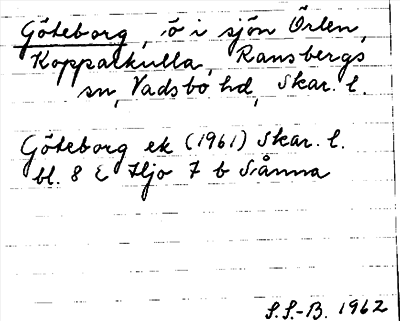 Göteborg, ö i sjön Örlen,
Kopparkulla, Ransbergs
sn, Vadsbo hd, Skar. l.
Göteborg ek (1961) Skar. l.
bl. 8 E Hjo 7 b Sånna
S.S.-B. 1962